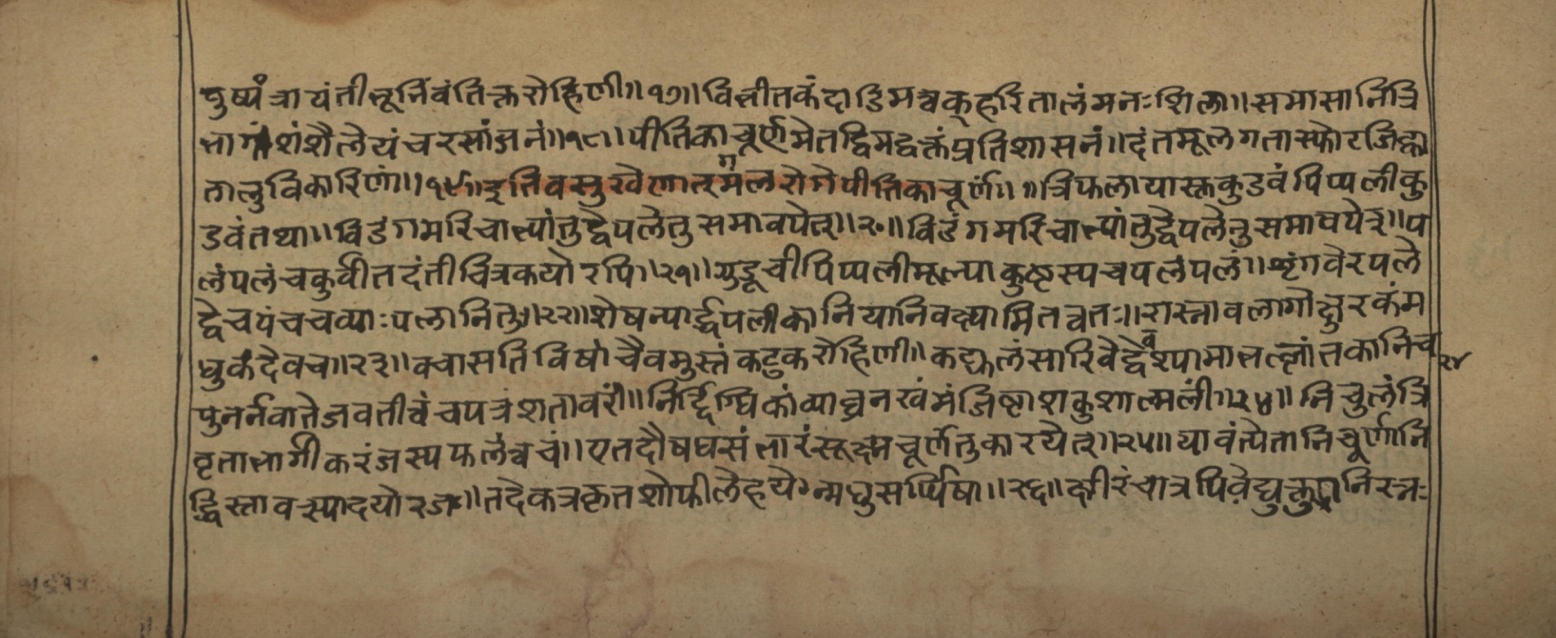 पुष्पं त्रायंती भूनिंबं तिक्तरोहिणी॥१७॥विभीतकं दाडिमत्वक् हरितालं मनःशिला॥समासानित्रि
भागांशं शैलेयं च रसांजनं॥१८॥पीतिकाचूर्णमेतद्विमद्वक्तं प्रतिशासनं॥दंतमूलगतास्फोटजिह्वा
तालुविकारिणं॥१९॥इति वसुखेणात्मर्गलरोगे पीतिकाचूर्णं॥॥त्रिफलायास्त्रकुडवं पिप्पलीकु
डवं तथा॥विडंगमरिचाभ्यां तु द्वे पले तु समावपेत्॥२०॥विडंगमरिचाभ्यां तु द्वे पले तु समावपेत्॥प
लं पलं च कुर्वीत दंतीचित्रकयोरपि॥२१॥गुडूचीपिप्पलीमूल्या कुष्ठस्य च पलं पलं॥शृंगवेरपले
द्वे च पंच चव्याः पलानि तु॥२२॥शेषन्यार्द्धपलीकानि यानि वक्ष्यामि तत्वतः॥रास्नाबलागोक्षुरकं म
धुकं दैवच॥२३॥क्वासतिविषां चैव मुस्तं कटुकरोहिणी॥कट्फलं सारिवे द्वे श्यामाभल्लांतकानि च
२४
पुनर्नवातेजवतीत्वंचपत्रं शतावरी॥निर्द्दिग्धिकां व्याघ्रनखं मंजिष्ठाशकुशाल्मली॥२४॥निचुलं त्रि
वृताभार्गी करंजस्य फलं त्वचं॥एतदौषधसंभारं सूक्ष्मचूर्णं तु कारयेत्॥२५॥यावंत्येतानि चूर्णानि
द्विस्तावस्यादयोरजः॥तदेकत्रकृतशोफी लेहयेन्मधुसर्पिषा॥२६॥क्षीरं चात्र पिवेद्यु